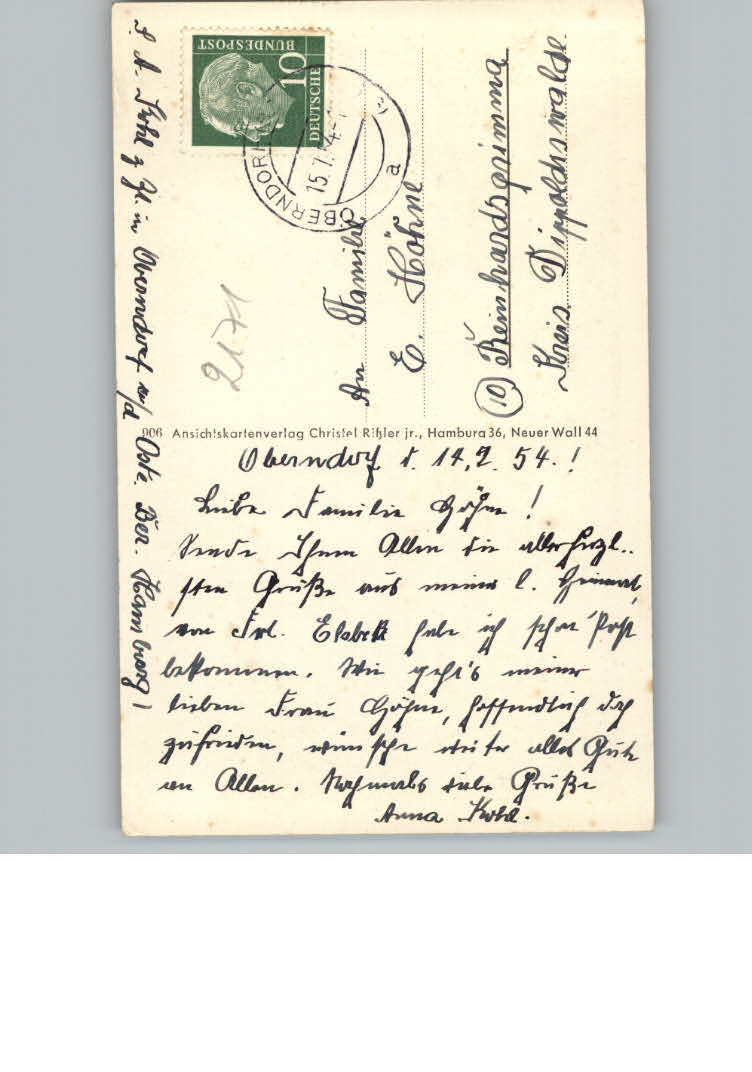 DEUTSCHE
BUNDESPOST
10
OBERNDORF
15.7.
a
2171
An Familie
E. Höhne
(10) Reinhardsgrimma
Kreis Dippoldiswalde.
906 Ansichtskartenverlag Christel Rißler jr., Hamburg 36, Neuer Wall 44
A. Kohl z. Zt. in Oberndorf a/d Oste. Bez. Hamburg!
Oberndorf d. 14.7.54.!
Liebe Familie Höhne!
Sende Ihnen Allen die allerherzl..
sten Grüße aus meiner l. Heimat,
von Frl. habe ich schon Post
bekommen. Wie geht's meiner
lieben Frau Höhne, hoffendlich doch
zufrieden, wünsche weiter alles Gute
an Allen. Nochmals viele Grüße
Anna Kohl.